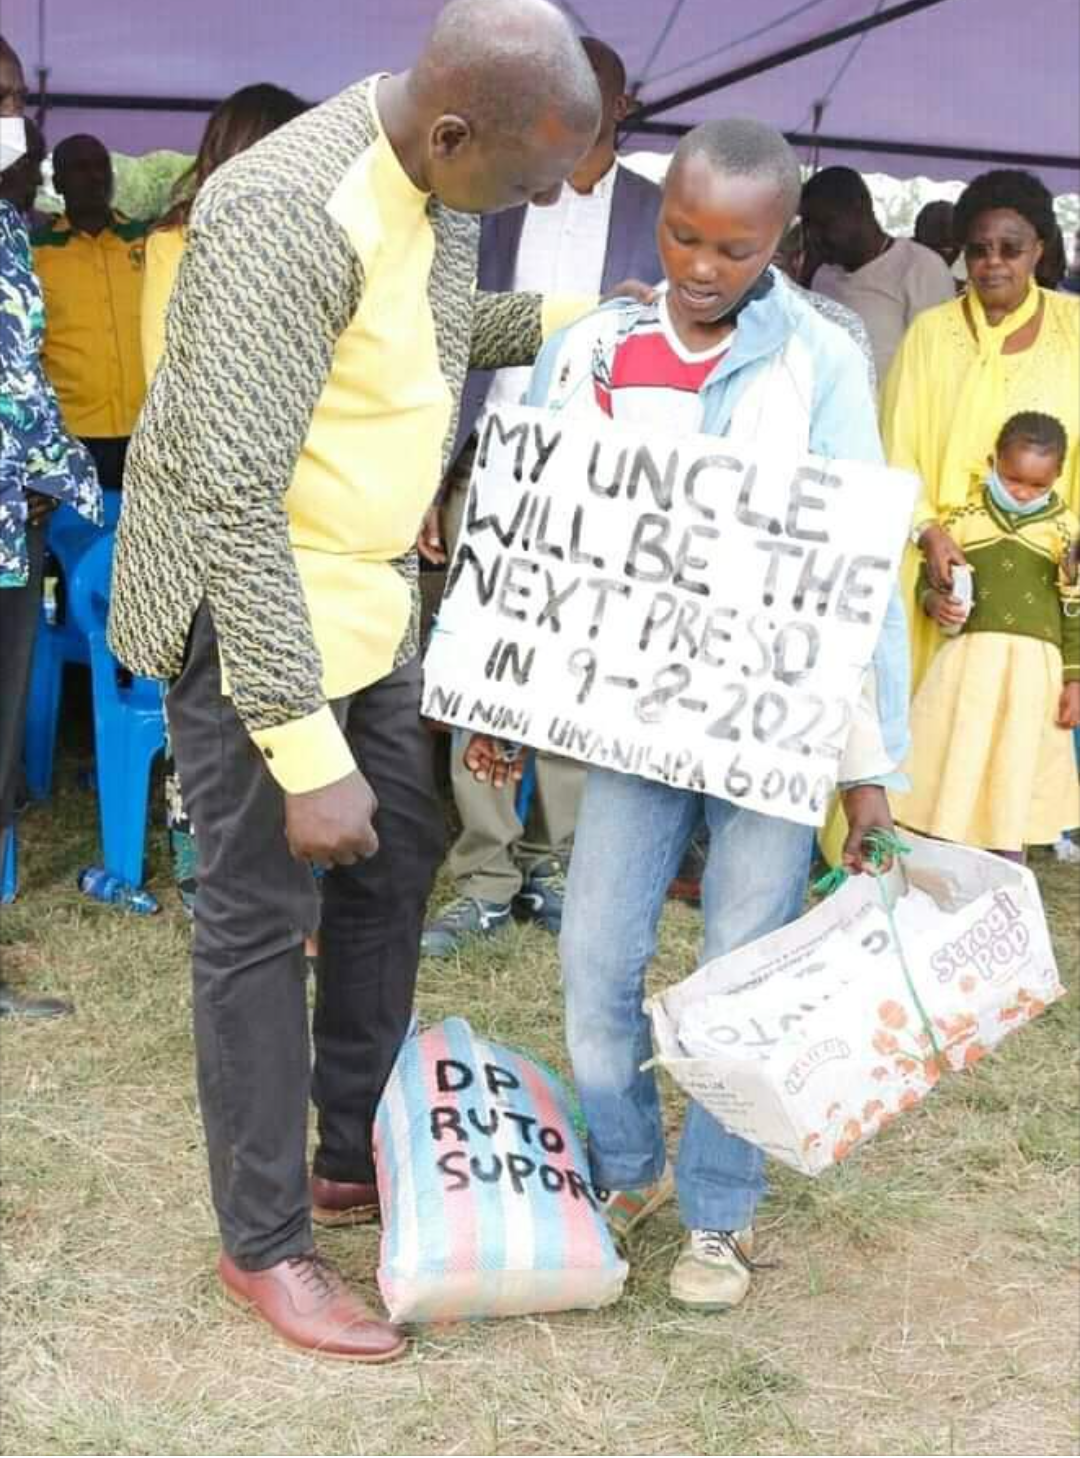 MY UNCLE
WILL BE THE
NEXT PRESO
IN 9-8-2022
NI NINI UNANILIPA 6000
DP
RUTO
SUPOR
Strogi
POP